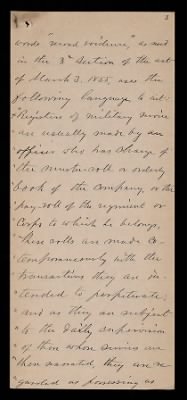 3
words "record evidence," as used
in the 3d section of the act
of March 3, 1855, uses the
following language to wit:
"Registers of military service
"are usually made by an
"officer who has charge of
"the muster-roll or orderly
"book of the company, or the
"pay-roll of the regiment or
"Corps to which he belongs.
"These rolls are made co-
"temporaneously with the
"transactions they are in-
"tended to perpetuate;
"and as they are subject
"to the daily supervision
"of those whose services are
"therein narrated, they are re-
"garded as possessing as